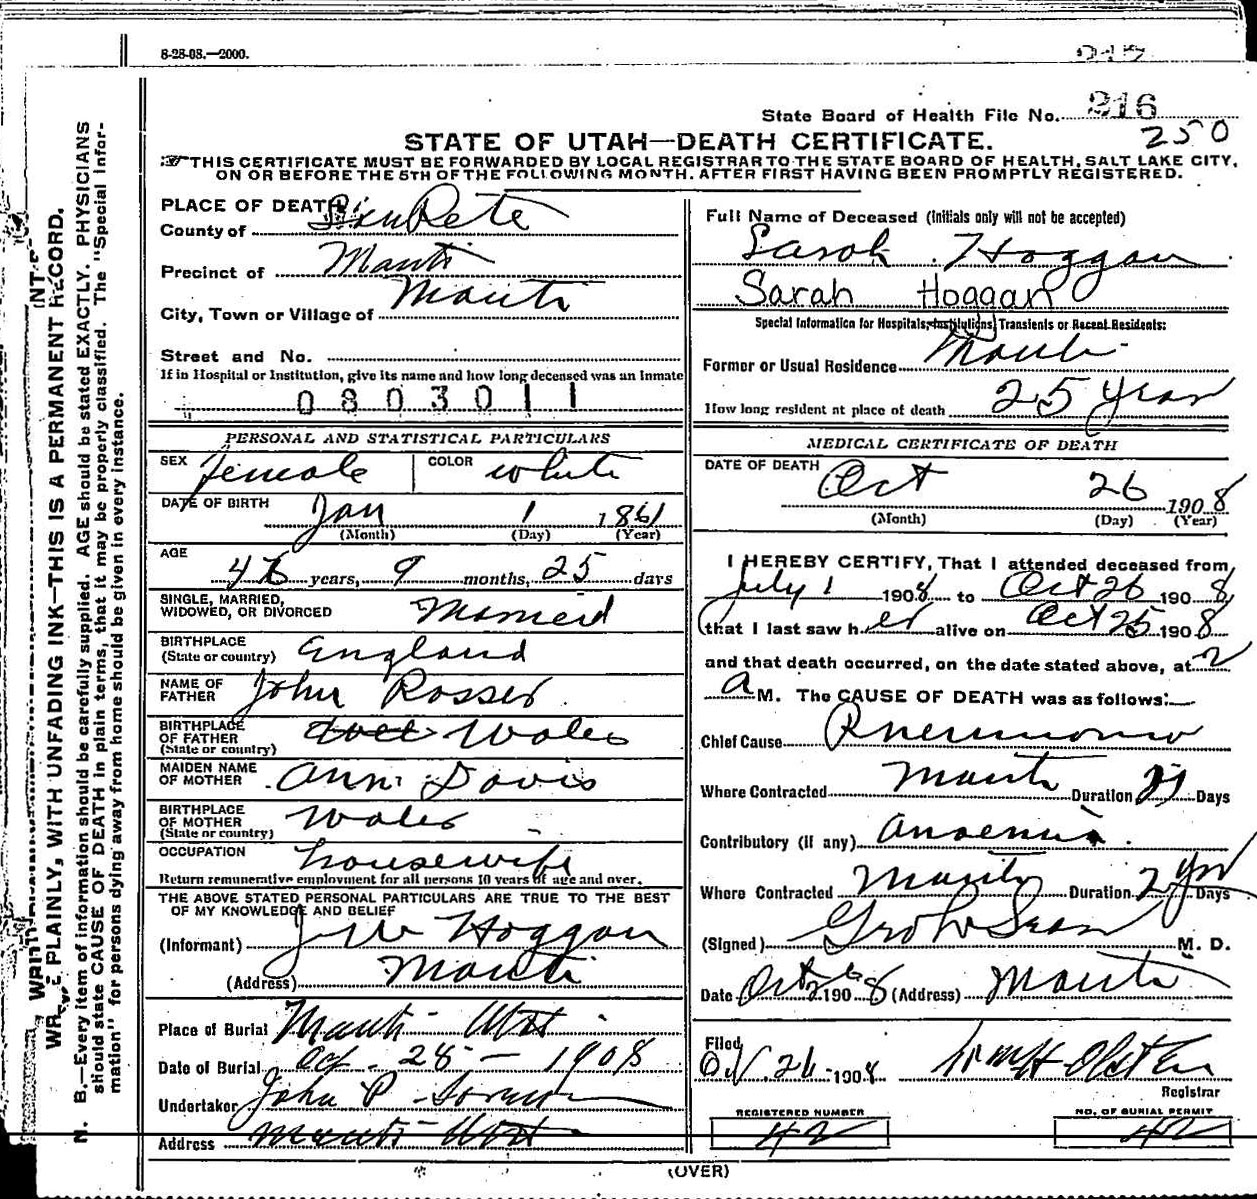 8-28-08.—2000.
State Board of Health File No. 216
250
STATE OF UTAH—DEATH CERTIFICATE.
THIS CERTIFICATE MUST BE FORWARDED BY LOCAL REGISTRAR TO THE STATE BOARD OF HEALTH, SALT LAKE CITY,
ON OR BEFORE THE 5TH OF THE FOLLOWING MONTH, AFTER FIRST HAVING BEEN PROMPTLY REGISTERED.
PLACE OF DEATH
County of SanPete
Precinct of Manti
City, Town or Village of Manti
Street and No.
If in Hospital or Institution, give its name and how long deceased was an Inmate
0803011
PERSONAL AND STATISTICAL PARTICULARS
SEX Female COLOR white
DATE OF BIRTH Jan 1 1861
(Month) (Day) (Year)
AGE
years, 9 months, 25 days
SINGLE, MARRIED,
WIDOWED, OR DIVORCED Married
BIRTHPLACE
(State or country) England
NAME OF
FATHER John Rosser
BIRTHPLACE
OF FATHER
(State or country) Wales
MAIDEN NAME
OF MOTHER Ann Davis
BIRTHPLACE
OF MOTHER
(State or country) Wales
OCCUPATION housewife
Return remunerative employment for all persons 10 years of age and over.
THE ABOVE STATED PERSONAL PARTICULARS ARE TRUE TO THE BEST
OF MY KNOWLEDGE AND BELIEF
(Informant) Hoggan
(Address) Manti
Place of Burial Manti Utah
Date of Burial Oct. 28 — 1908
Undertaker John P
Address Manti Utah
Full Name of Deceased (Initials only will not be accepted)
Sarah Hoggan
Sarah Hoggan
Special Information for Hospitals, Institutions, Transients or Recent Residents:
Former or Usual Residence Manti
How long resident at place of death 25 years
MEDICAL CERTIFICATE OF DEATH
DATE OF DEATH Oct 26 1908
(Month) (Day) (Year)
I HEREBY CERTIFY, That I attended deceased from
July 1 1908 to Oct 26 1908
that I last saw her alive on Oct 25 1908
and that death occurred, on the date stated above, at 2
a M. The CAUSE OF DEATH was as follows:
Chief Cause Pneumonia
Where Contracted Manti Duration Days
Contributory (if any) Anaemia
Where Contracted Manti Duration 2 yrs Days
(Signed) M. D.
Date Oct 26 1908 (Address) Manti
Filed
Oct 26 1908
Registrar
REGISTERED NUMBER
42
NO. OF BURIAL PERMIT
42
(OVER)
WRITE PLAINLY, WITH UNFADING INK—THIS IS A PERMANENT RECORD.
N. B.—Every item of information should be carefully supplied. AGE should be stated EXACTLY. PHYSICIANS
should state CAUSE OF DEATH in plain terms, that it may be properly classified. The "Special Infor-
mation" for persons dying away from home should be given in every instance.